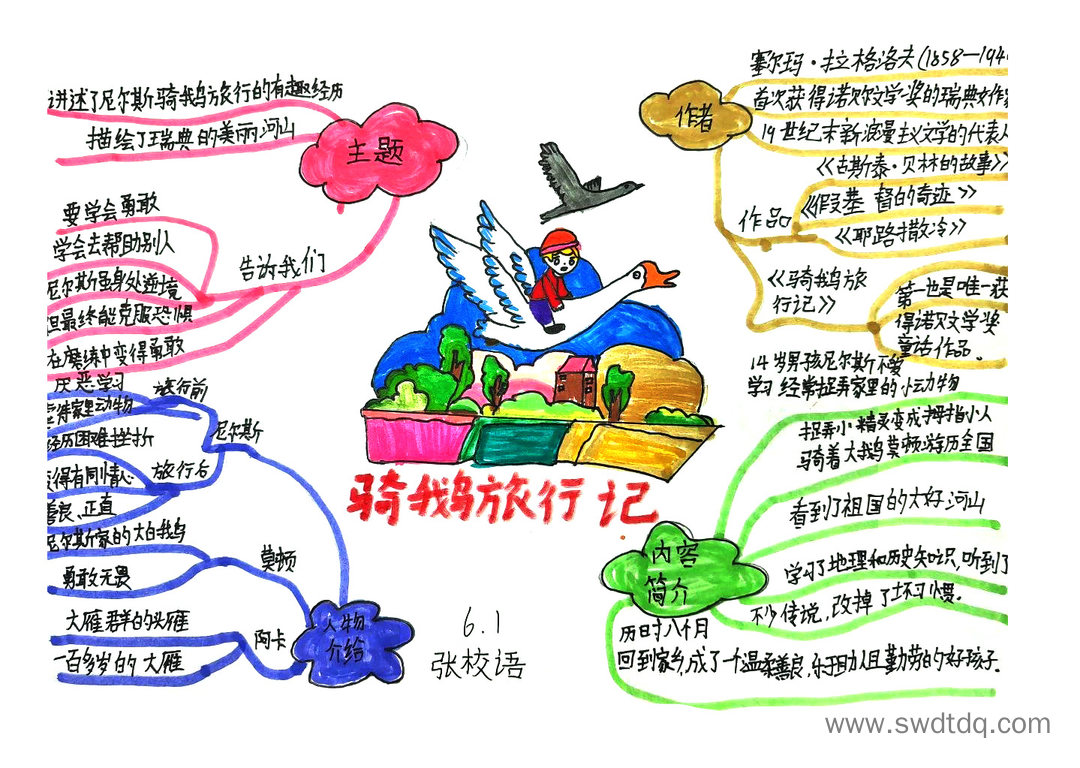 讲述了尼尔斯骑鹅旅行的有趣经历
描绘了瑞典的美丽河山
主题
要学会勇敢
学会去帮助别人
尼尔斯虽身处逆境
但最终能克服恐惧
在磨练中变得勇敢
告诉我们
厌恶学习
家里动物
旅行前
经历困难挫折
得有同情心
善良、正直
旅行后
尼尔斯
尼尔斯家的大白鹅
勇敢无畏
莫顿
大雁群的头雁
一百多岁的大雁
阿卡
人物
介绍
骑鹅旅行记
6.1
张校语
作者
塞尔玛·拉格洛夫(1858—194
首次获得诺贝尔文学奖的瑞典女作家
19世纪末新浪漫主义文学的代表人
作品
《古斯泰·贝林的故事》
《假基督的奇迹》
《耶路撒冷》
《骑鹅旅
行记》
第一也是唯一获
得诺贝文学奖
童话作品。
14岁男孩尼尔斯不爱
学习 经常捉弄家里的小动物
捉弄小精灵变成拇指小人
骑着大鹅莫顿游历全国
看到了祖国的大好河山
学习了地理和历史知识,听到了
不少传说,改掉了坏习惯。
内容
简介
历时八个月
回到家乡,成了一个温柔善良,乐于助人且勤劳的好孩子.
www.swdtdq.com